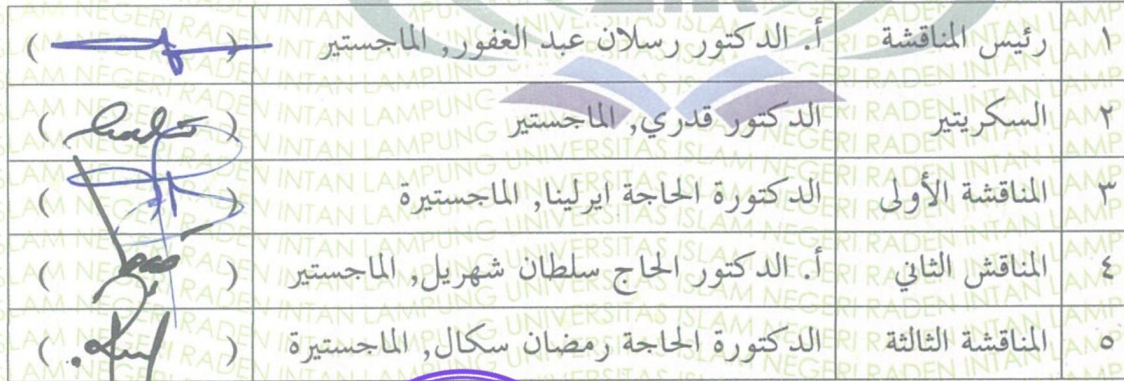 ١ رئيس المناقشة أ. الدكتور رسلان عبد الغفور, الماجستير ( )
٢ السكريتير الدكتور قدري, الماجستير ( )
٣ المناقشة الأولى الدكتورة الحاجة ايرلينا, الماجستيرة ( )
٤ المناقش الثاني أ. الدكتور الحاج سلطان شهريل, الماجستير ( )
٥ المناقشة الثالثة الدكتورة الحاجة رمضان سكال, الماجستيرة ( )